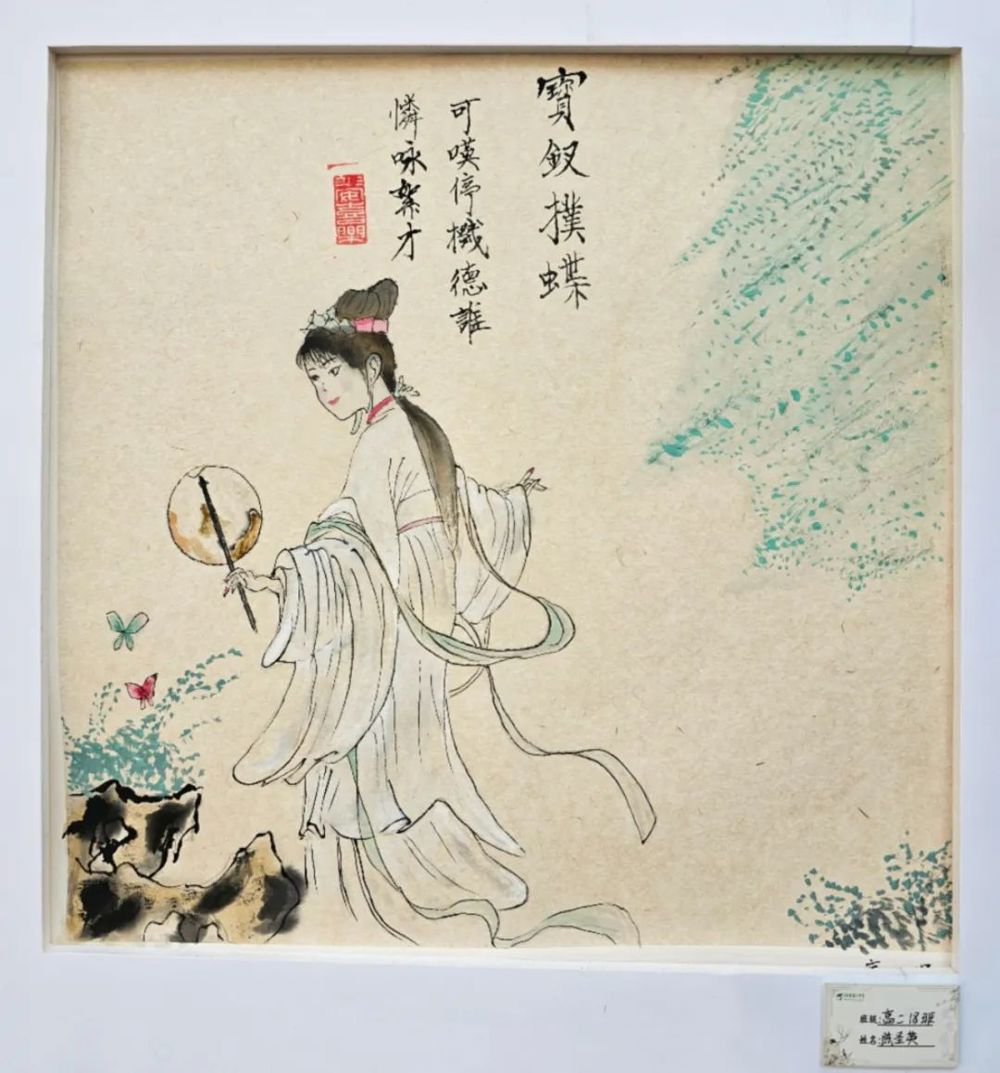 寶釵撲蝶
可嘆停機德誰
憐咏絮才
班级:高二18班
姓名: